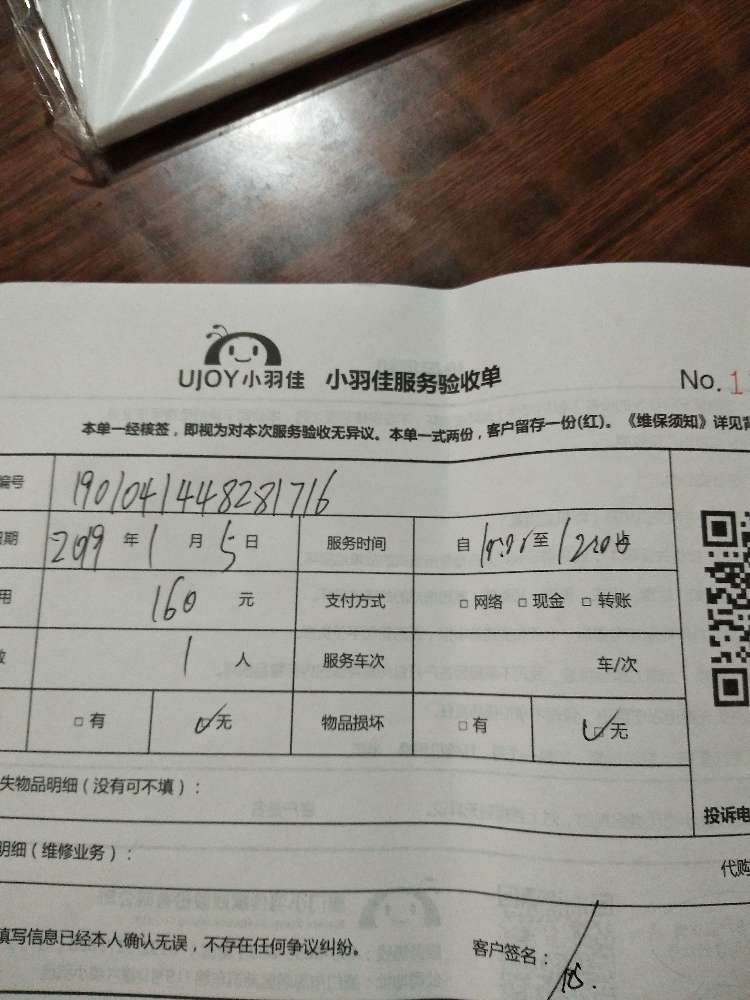 UJOY小羽佳 小羽佳服务验收单 No. 1
本单一经核签，即视为对本次服务验收无异议。本单一式两份，客户留存一份(红)。《维保须知》详见背
编号 190104144828171​6
日期 2019 年 1 月 5 日 服务时间 自 至
用 160 元 支付方式 □ 网络 □ 现金 □ 转账
数 1 人 服务车次 车/次
□ 有 □ 无 物品损坏 □ 有 □ 无
失物品明细（没有可不填）：
投诉电
明细（维修业务）：
代购
填写信息已经本人确认无误，不存在任何争议纠纷。 客户签名：